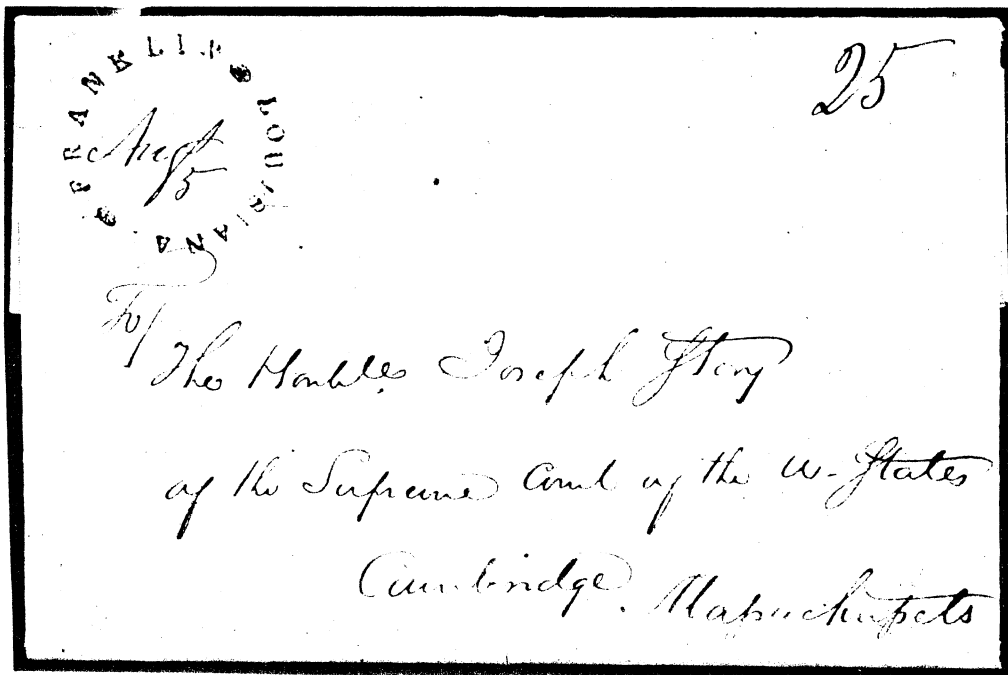 FRANKLIN LOUISIANA
Augt
5
25
To/
The Honble. Joseph Story
of the Supreme Court of the U-States
Cambridge. Massachusetts